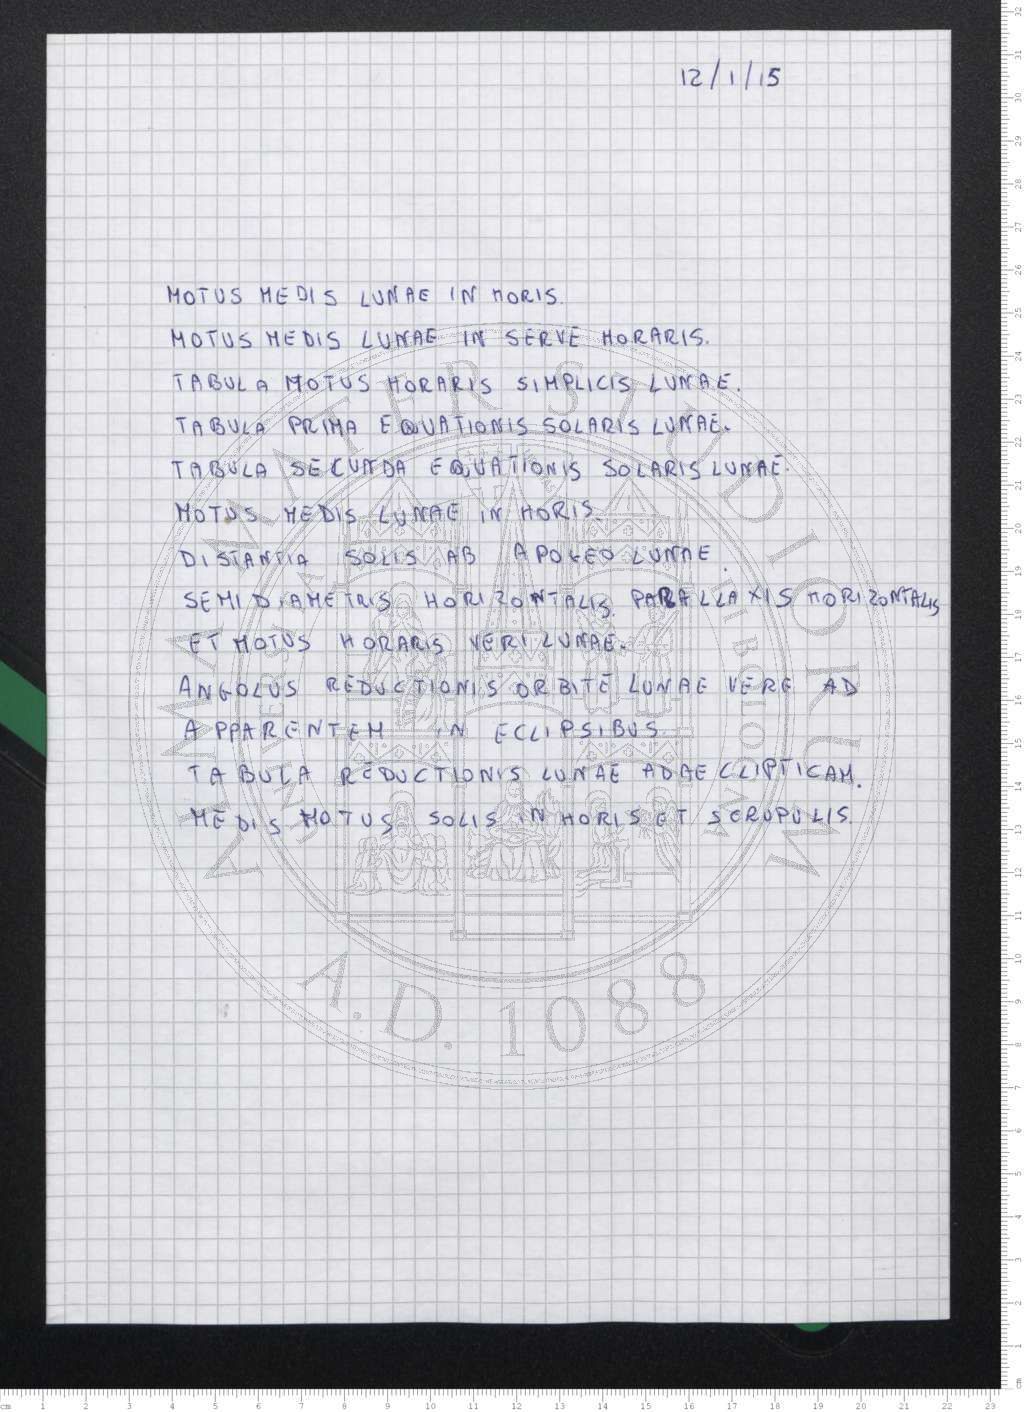 12/1/15
MOTUS MEDIS LUNAE IN HORIS.
MOTUS MEDIS LUNAE IN SERVE HORARIS.
TABULA MOTUS HORARIS SIMPLICIS LUNAE.
TABULA PRIMA EQUATIONIS SOLARIS LUNAE.
TABULA SECUNDA EQUATIONIS SOLARIS LUNAE.
MOTUS MEDIS LUNAE IN HORIS.
DISTANTIA SOLIS AB APOGEO LUNAE.
SEMIDIAMETRIS HORIZONTALIS. PARALLAXIS HORIZONTALIS
ET MOTUS HORARIS VERI LUNAE.
ANGOLUS REDUCTIONIS ORBITE LUNAE VERE AD
APPARENTEM IN ECLIPSIBUS.
TABULA REDUCTIONIS LUNAE AD AECLIPTICAM.
MEDIS MOTUS SOLIS IN HORIS ET SCRUPULIS.
ALMA MATER STUDIORUM
A.D. 1088